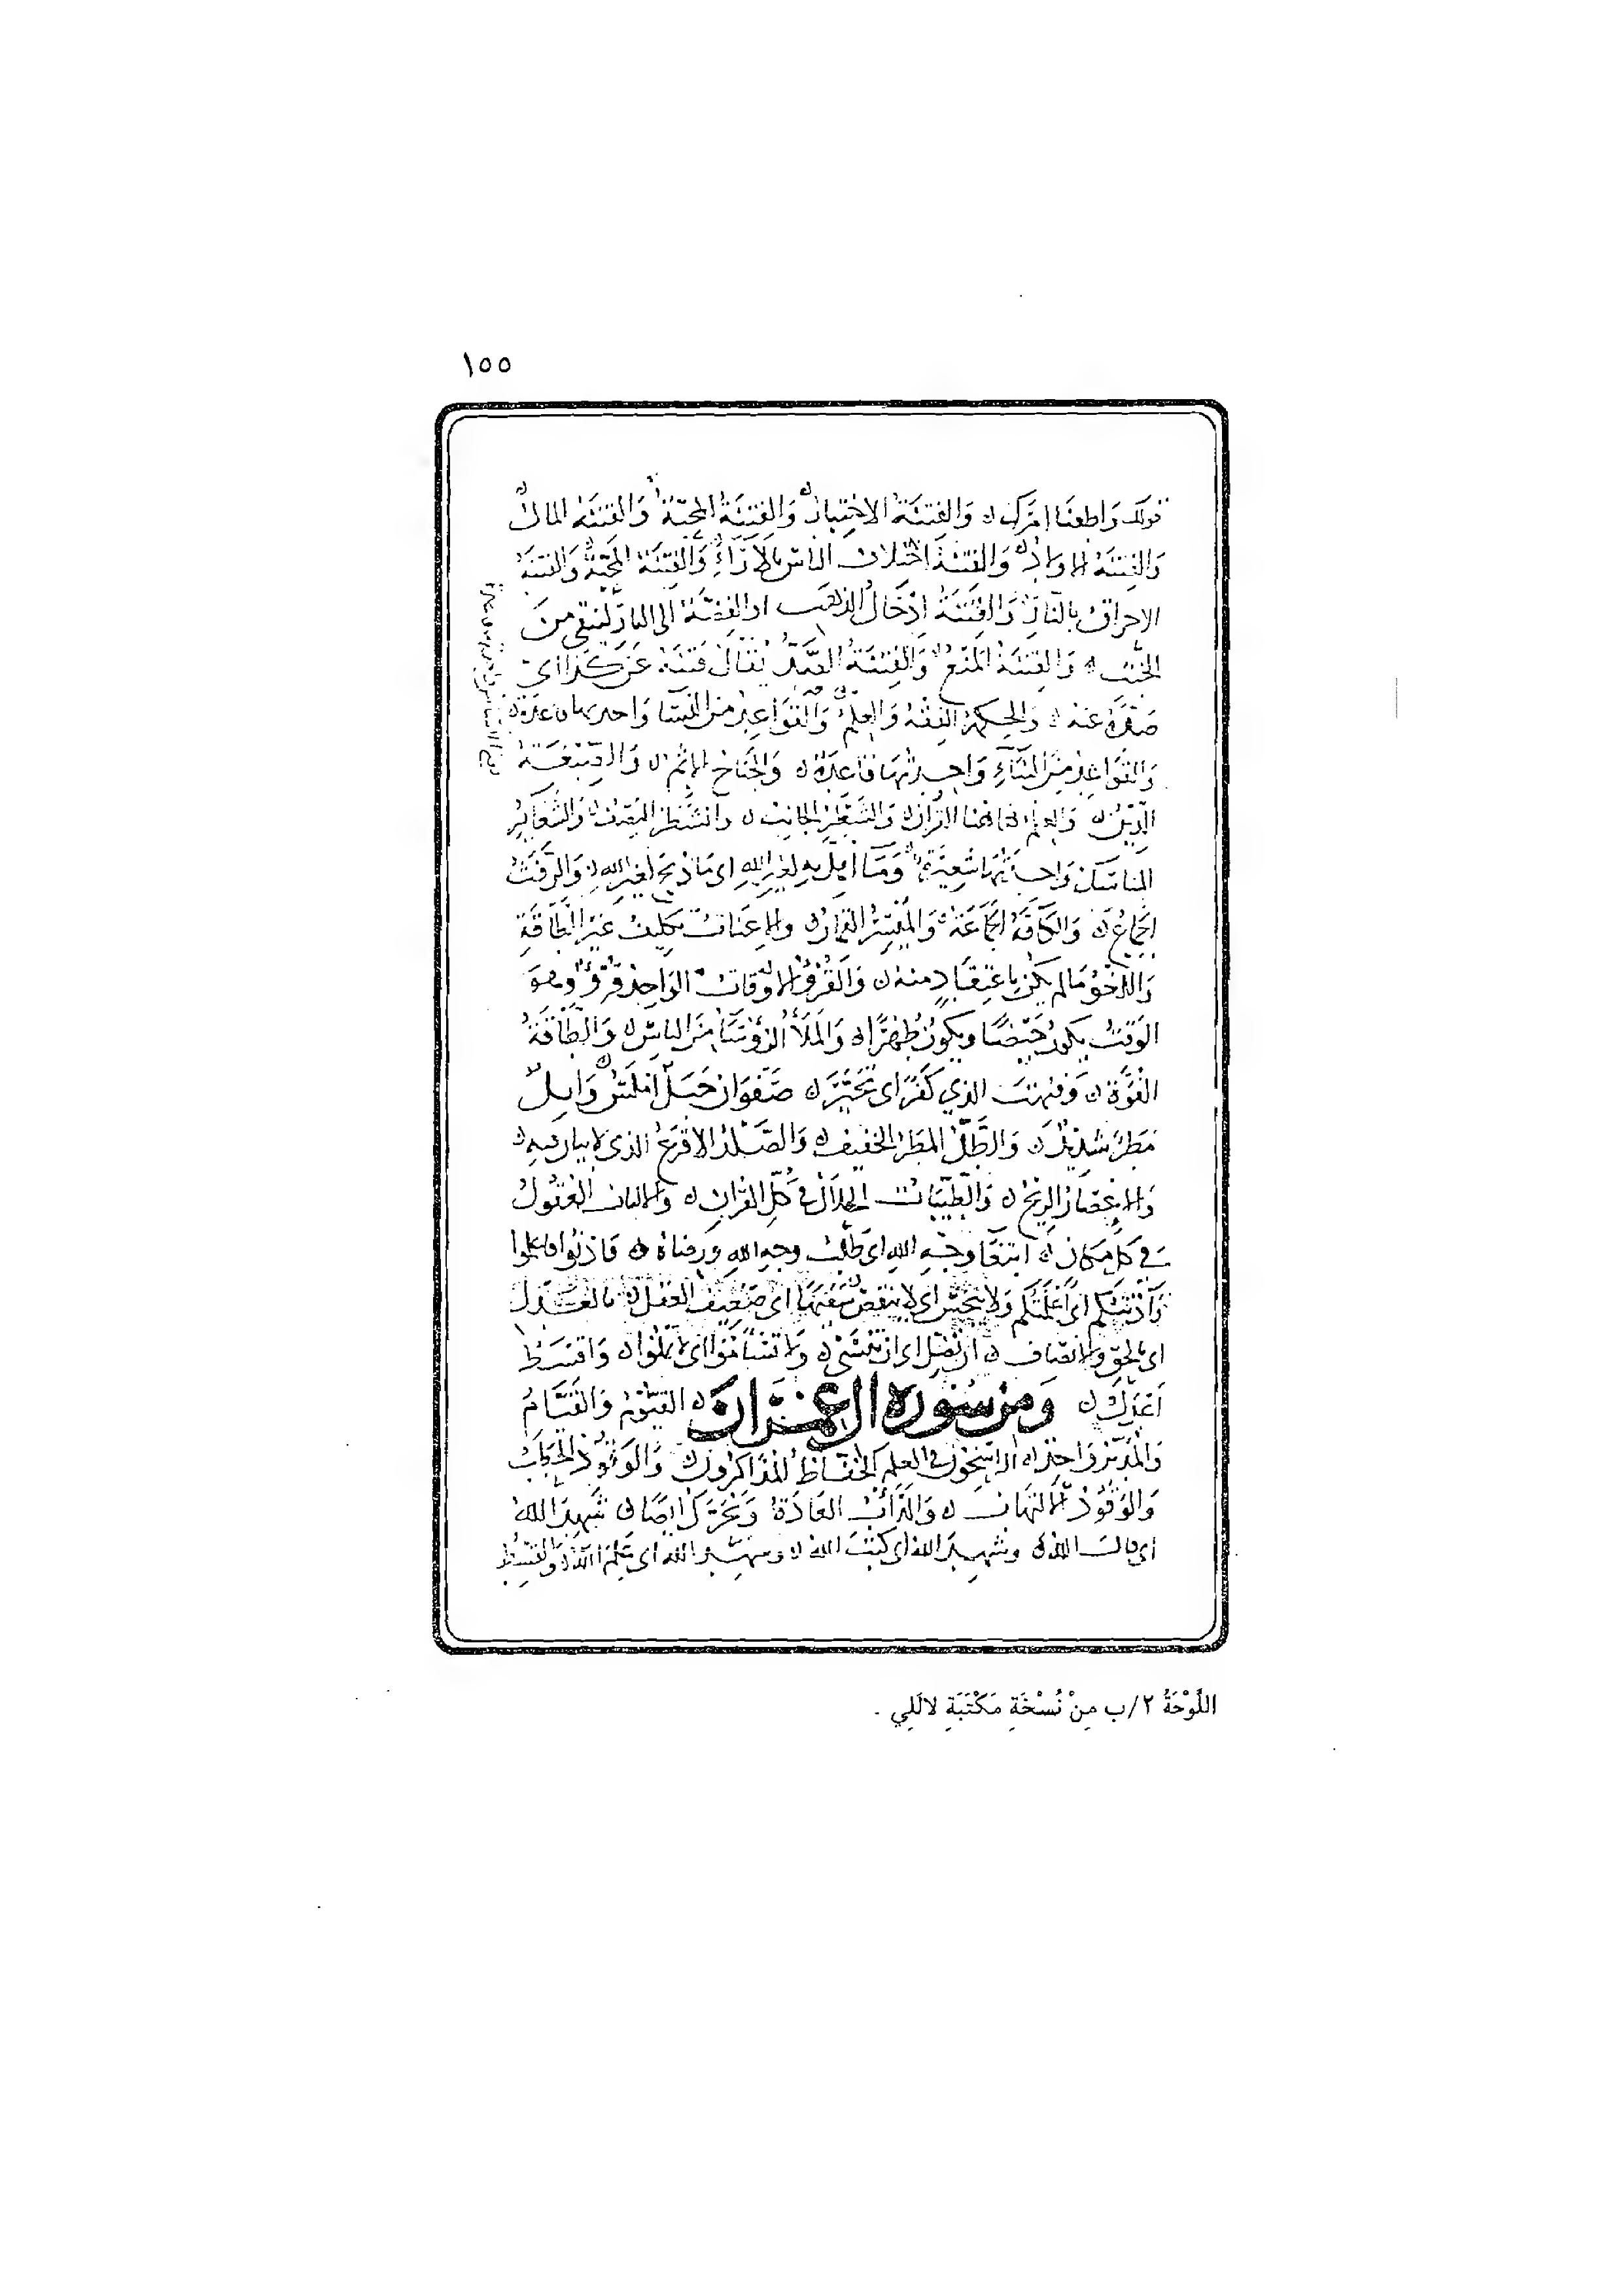 ١٥٥
قولك وأطعنا أمرك ه والفِتنَةُ الاختِبارُ ه والفِتنَةُ المِحنَةُ ه والفتنَةُ المالُ ه
والفِتنَةُ الأولادُ ه والفتنَةُ اختلاف الناسِ بالآراءِ ه والفِتنَةُ المِحنَةُ والفتنَةُ
الاحراق بالنارِ ه والفِتنَةُ ادخَالُ الذهَب او الفِضّة الى النارِ لتنقى منَ
الخَبَث ه والفِتنَةُ المَنْعُ ه والفِتنَةُ الصَّدُّ يُقَالُ فتَنَهُ عَن كذا اى
صَدَّهُ عنه ه والحِكمةُ الفِقْهُ والعِلمُ ه والقَوَاعِدُ من النسَا واحدتها قاعدة ه
والقَوَاعِدُ مِنَ البنَآءِ واحِدتُها قاعدةٌ ه والجُنَاحُ الإثم ه والصِّبْغَةُ
الدِّينُ ه والعِلم هاهُنا القرآن ه والشَّطْرُ الجانِبُ ه والشَّطرُ النِّصْف ه والشَّعَايرُ
المناسك واحِدَتُها شَعِيرَةٌ ه ومَا أُهِلَّ بهِ لغيرِ اللهِ اى مَا ذُبِحَ لغيرِ الله ه والرَّفَثُ
الجِمَاعُ ه والكافّةُ الجَماعَةُ ه والمَيْسِرُ القِمارُ ه والإعناتُ تكليفُ غيرِ الطّاقَةِ
واللَّغْوُ مَا لم يكُن باعتِقَادٍ منه ه والقُرُؤُ الأوقاتُ الواحِدُ قَرْءٌ وهو
الوَقتُ يكون حَيْضًا ويكونُ طُهْرًا ه والمَلَأُ الرُّؤَسَاءُ مِنَ الناسِ ه والطَّاقَةُ
القُوَّة ه وَفبُهِتَ الذي كَفَرَ اى تَحَيَّرَ ه صَفْوان جَبَل املَسُ ه وَابِلٌ
مَطَرٌ شديدٌ ه والطَّلُّ المَطَرُ الخفيف ه والصَّلْدُ الاقرَعُ الذي لا نبات فيه ه
والإعْصَارُ الريحُ ه والطَّيِّبَاتُ الحَلَالُ في كُلِّ القرآن ه والالباب العُقُولُ
في كلِّ مكانٍ ه ابتغَآ وجْهِ اللهِ اى طَلَبَ وجهِ اللهِ ورِضَاهُ ه فأذنُوا فاعلموا
وآذنتُكُم اى أَعْلَمْتُكُم ولا يَبْخَسْ اى لا يَنقُصْ سَفِيهًا اى ضَعِيفَ العَقل ه بالعَدل
اى بالحق والإنصاف ه أن تَضِلَّ اى ان تَنسَى ه ولا تَسْأَمُوا اى لا تَمَلُّوا ه وَاقسَط
اعْدَلُ ه ومن سُورة ال عمران ه القيُّوم والقَيَّامُ
والمُدَبِّرُ وَاحِدٌ ه الراسِخُونَ في العِلم الحُفّاظُ المُذَاكِرُون ه والوَقُودُ الحَطَبُ
والوُقُودُ الالتهابُ ه والدَّأْبُ العَادَةُ وتُحَرَّكُ ايضًا ه شَهِدَ اللهُ
اى قال الله ه وشَهِدَ الله اى كتَبَ الله ه وشهِدَ الله اى عَلِمَ الله ه والقِسْطُ
اللَّوْحَةُ ٢/ب مِنْ نُسْخَةِ مَكْتَبَةِ لالَلِي .